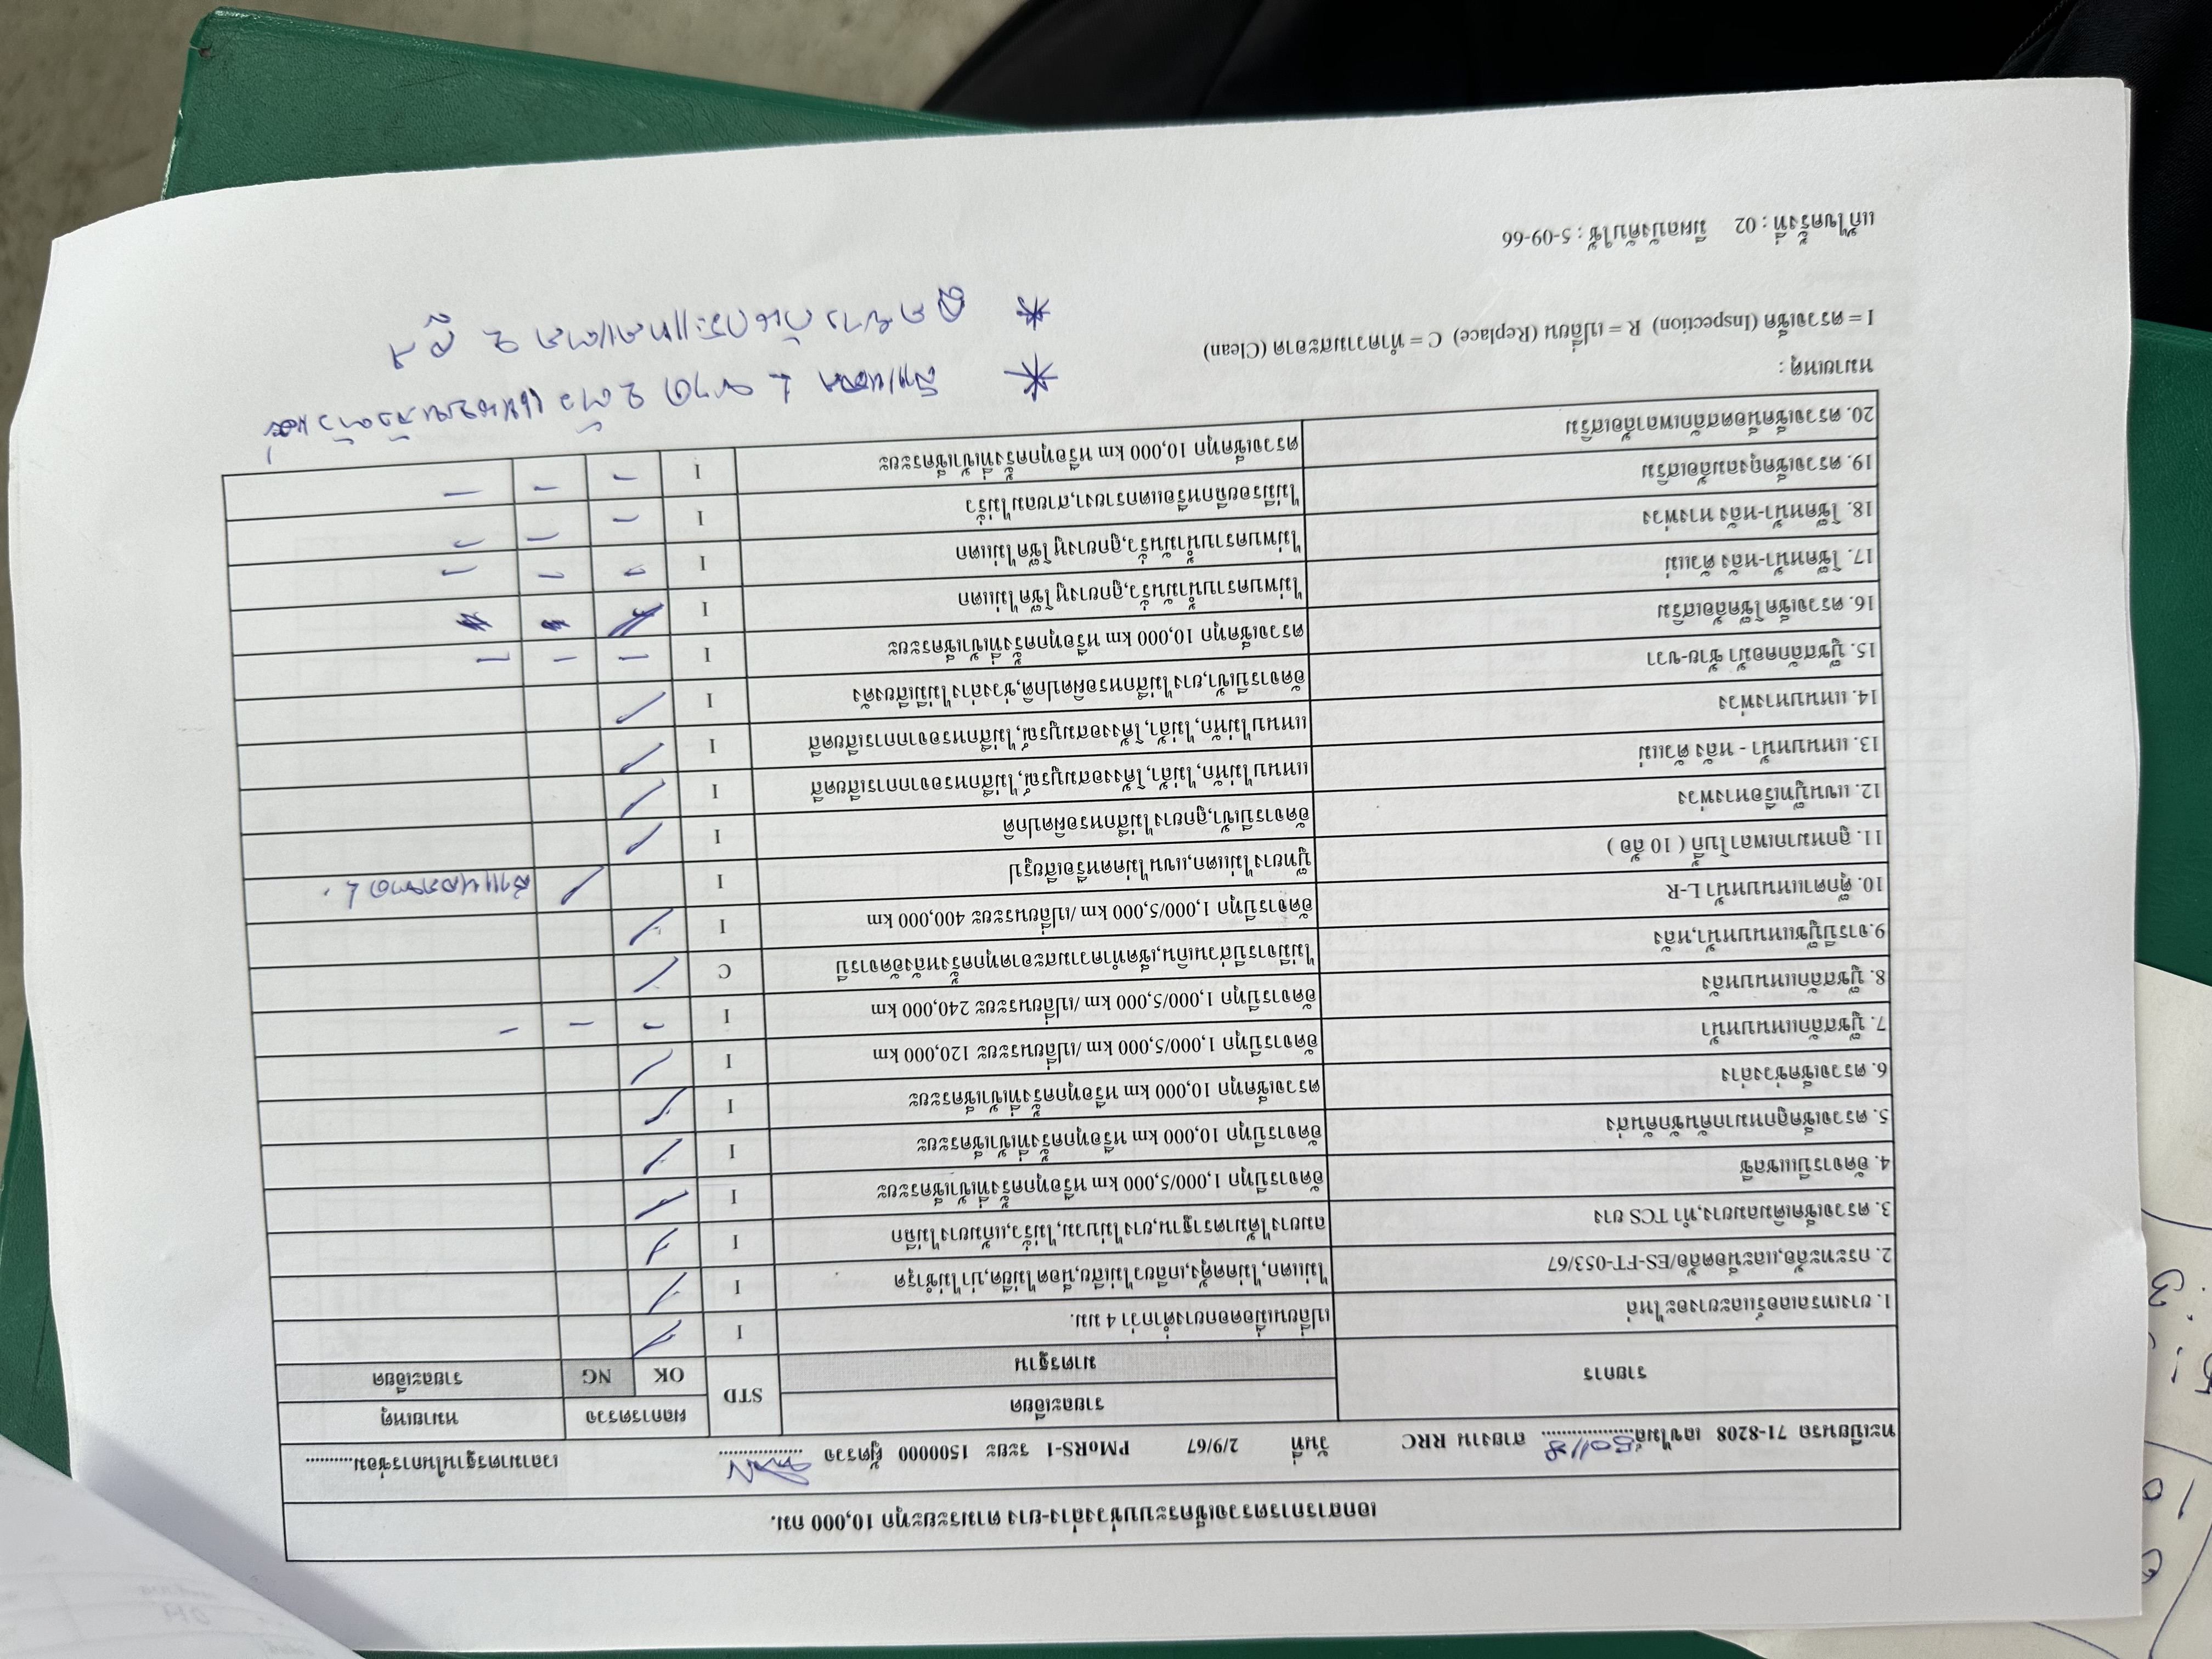 เอกสารการตรวจเช็คระบบช่วงล่าง-ยาง ตามระยะทุก 10,000 กม.
ทะเบียนรถ 71-8208 เลขไมล์ สายงาน RRC วันที่ 2/9/67 PMoRS-1 ระยะ 1500000 ผู้ตรวจ เวลามาตรฐานในการซ่อม
รายการ รายละเอียด STD ผลการตรวจ หมายเหตุ
มาตรฐาน OK NG รายละเอียด
1. ยางเทรลเลอร์และยางอะไหล่ เปลี่ยนเมื่อดอกยางต่ำกว่า 4 มม. I /
2. กระทะล้อ,และน็อตล้อ/ES-FT-053/67 ไม่แตก,ไม่คดคุ้ง,เกลียวไม่เสีย,น็อตไม่ยืด,บ่าไม่ชำรุด I /
3. ตรวจเช็คเติมลมยาง,ทำ TCS ยาง ลมยางได้มาตราฐาน,ยางไม่บวม,ไม่รั่ว,แก้มยางไม่ฉีก I /
4. อัดจารบีแชสซี อัดจารบีทุก 1,000/5,000 km หรือทุกครั้งที่เข้าเช็คระยะ I /
5. ตรวจเช็คลูกหมากคันชักคันส่ง อัดจารบีทุก 10,000 km หรือทุกครั้งที่เข้าเช็คระยะ I /
6. ตรวจเช็คช่วงล่าง ตรวจเช็คทุก 10,000 km หรือทุกครั้งที่เข้าเช็คระยะ I /
7. บู๊ชสลักแหนบหน้า อัดจารบีทุก 1,000/5,000 km /เปลี่ยนระยะ 120,000 km I /
8. บู๊ชสลักแหนบหลัง อัดจารบีทุก 1,000/5,000 km /เปลี่ยนระยะ 240,000 km I - - -
9.จารบีบู๊ชแหนบหน้า,หลัง ไม่มีจารบีส่วนเกิน,เช็คทำความสะอาดทุกครั้งหลังอัดจารบี C /
10. ตุ๊กตาแหนบหน้า L-R อัดจารบีทุก 1,000/5,000 km /เปลี่ยนระยะ 400,000 km I /
11. ลูกหมากเพลาโบกี้ ( 10 ล้อ ) บู๊ทยางไม่แตก,แขนไม่คดหรือเสียรูป I /
12. แขนบู๊ทเรือหางพ่วง อัดจารบีเข้า,ลูกยางไม่สึกหรอผิดปกติ I /
13. แหนบหน้า - หลัง ตัวแม่ แหนบไม่หัก,ไม่ล้า,โค้งงอสมบูรณ์,ไม่สึกหรอจากการเสียดสี I /
14. แหนบหางพ่วง แหนบไม่หัก,ไม่ล้า,โค้งงอสมบูรณ์,ไม่สึกหรอจากการเสียดสี I /
15. บู๊ชสลักคอม้า ซ้าย-ขวา อัดจารบีเข้า,ยางไม่สึกหรอผิดปกติ,ช่วงล่างไม่มีเสียงดัง I /
16. ตรวจเช็คโช๊คล้อเสริม ตรวจเช็คทุก 10,000 km หรือทุกครั้งที่เข้าเช็คระยะ I - - -
17. โช๊คหน้า-หลัง ตัวแม่ ไม่พบคราบน้ำมันรั่ว,ลูกยางหูโช๊คไม่แตก I /
18. โช๊คหน้า-หลัง หางพ่วง ไม่พบคราบน้ำมันรั่ว,ลูกยางหูโช๊คไม่แตก I - - -
19. ตรวจเช็คถุงลมล้อเสริม ไม่มีรอยฉีกหรือแตกรายงา,สายลมไม่รั่ว I - - -
20. ตรวจเช็คน็อตสลักเพลาล้อเสริม ตรวจเช็คทุก 10,000 km หรือทุกครั้งที่เข้าเช็คระยะ I - - -
หมายเหตุ :
I = ตรวจเช็ค (Inspection) R = เปลี่ยน (Replace) C = ทำความสะอาด (Clean)
* สาแหรก ขาด 2 ตัว แหนบหลังตัวแม่
* ลูกยางกันกระแทกแตก 2 ลูก
แก้ไขครั้งที่ : 02 มีผลบังคับใช้ : 5-09-66